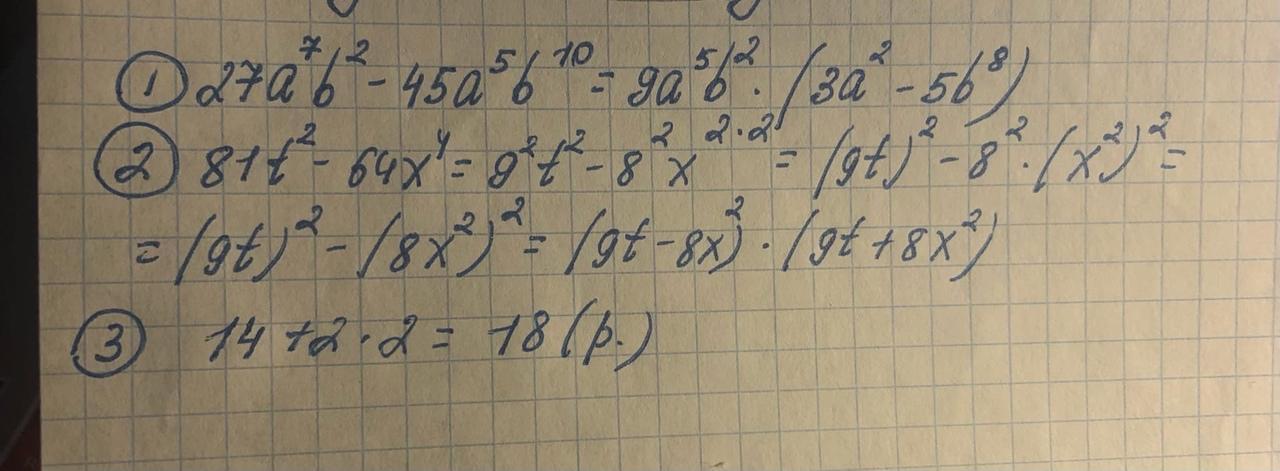 ① 27a⁷b² - 45a⁵b¹⁰ = 9a⁵b² · (3a² - 5b⁸)
② 81t² - 64x⁴ = 9²t² - 8²x²˙² = (9t)² - 8² · (x²)² =
= (9t)² - (8x²)² = (9t - 8x)² · (9t + 8x²)
③ 14 + 2 · 2 = 18 (р.)